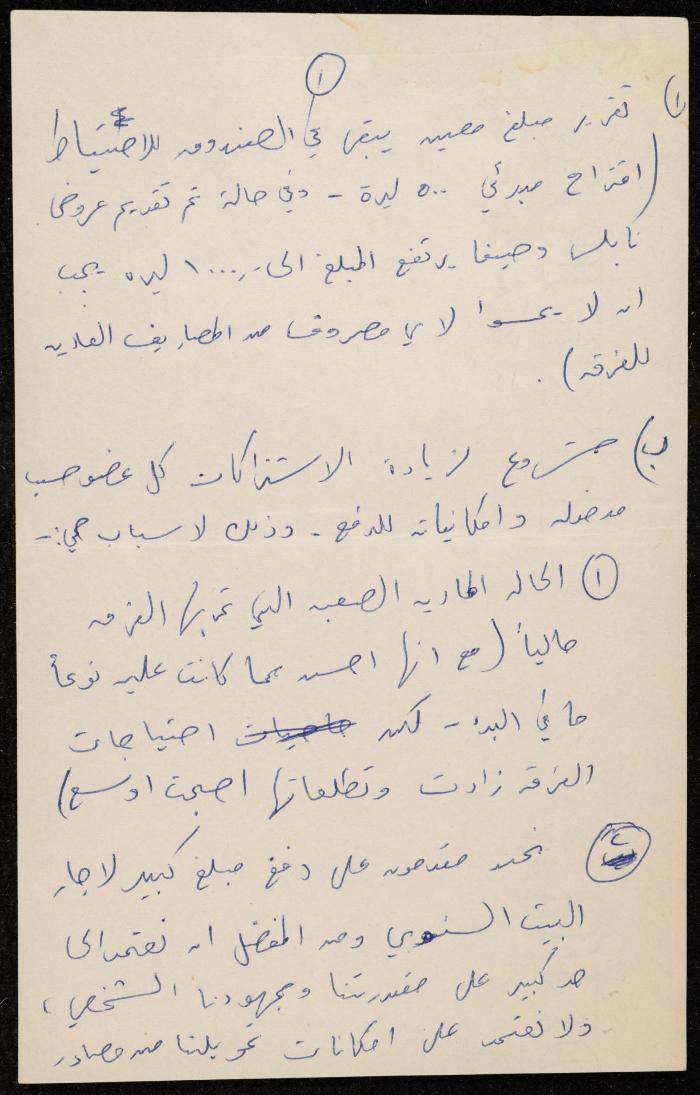 ١
١) تقرير مبلغ معين يبقى في الصندوق للاحتياط
(اقتراح مبدئي ٥٠٠ ليرة - وفي حالة تم تقديم عروض
نابلس وحيفا يرتفع المبلغ الى ١٠٠٠ ليره يجب
ان لا يمسوا لاي مصروف من المصاريف العاديه
للفرقه).
ب) مشروع لزيادة الاشتراكات كل عضو حسب
مدخوله وامكانياته للدفع. وذلك لاسباب هي:-
١ الحاله الماديه الصعبه التي تمر بها الفرقه
حالياً (مع انها احسن مما كانت عليه نوعاً
ما في البدء - لكن احتياجات
الفرقه زادت وتطلعاتها اصبحت اوسع)
٢ نحن مقدمون على دفع مبلغ كبير لاجار
البيت السنوي ومن المفضل ان نعتمد الى
حد كبير على مقدرتنا ومجهودنا الشخصي،
ولا نعتمد على امكانات تمويلنا من مصادر